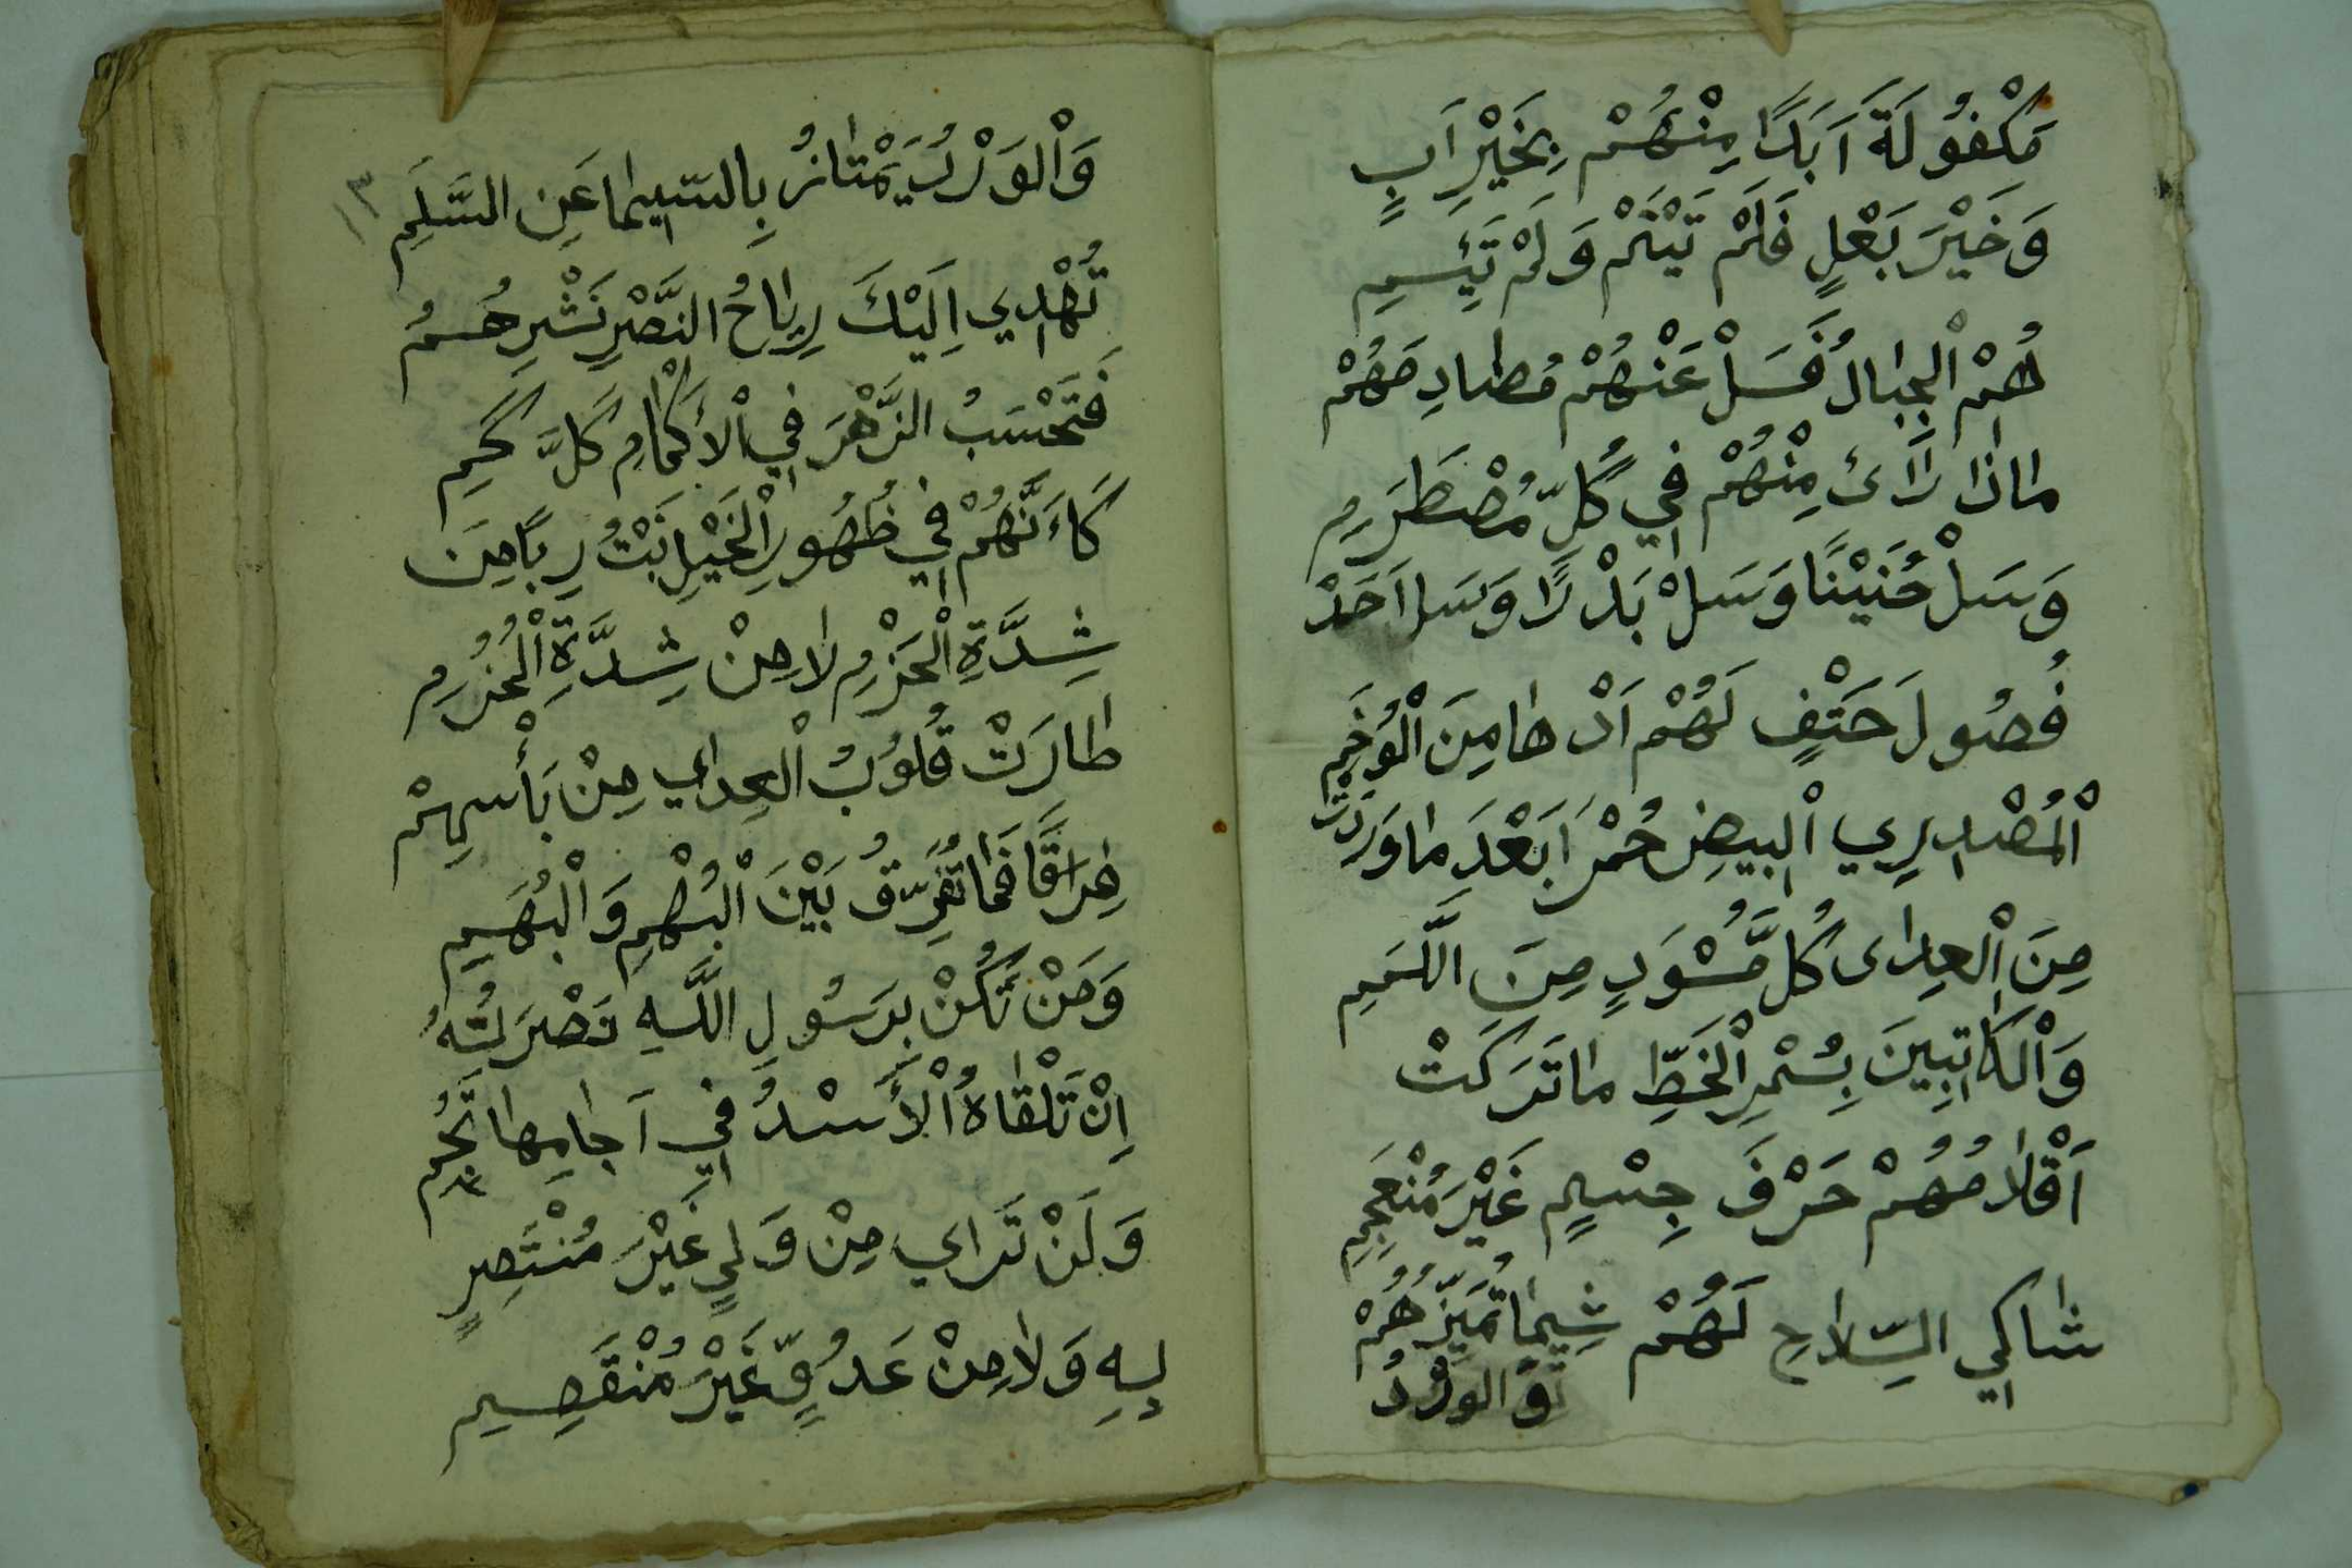 مَكْفُولَةَ اَبَدًا مِنْهُمْ بِخَيْرِ اَبٍ
وَخَيْرَ بَعْلٍ فَلَمْ تَيْتَمْ وَلَمْ تَئِمِ
هُمُ الْجِبَالُ فَسَلْ عَنْهُمْ مُصَادِمَهُمْ
مَاذَا رَاَىٔ مِنْهُمْ فِي كُلِّ مُصْطَرَمِ
وَسَلْ حُنَيْنًا وَسَلْ بَدْرًا وَسَل اَحَدْ
فُصُولَ حَتْفٍ لَهُمْ اَدْهَا مِنَ الْوُخَمِ
اَلْمُصْدِرِي الْبِيضِ حُمْرًا بَعْدَ مَا وَرَدَتْ
مِنَ الْعِدَاى كُلَّ مُسْوَدٍ مِنَ اللَّمَمِ
وَالْكَاتِبِينَ بِسُمْرِ الْخَطِّ مَا تَرَكَتْ
اَقْلَامُهُمْ حَرْفَ جِسْمٍ غَيْرَ مُنْعَجِمِ
شَاكِي السِّلَاحِ لَهُمْ شِيمَا تُمَيِّزُهُمْ
وَالوَرْدُ
١٣
وَالْوَرْدُ يَمْتَازُ بِالسِّيمَا عَنِ السَّلَمِ
تُهْدِي اِلَيْكَ رِيَاحُ النَّصْرِ نَشْرِهُمُ
فَتَحْسَبُ الزَّهْرَ فِي الْأَكْمَامِ كَلَّ كَمِ
كَاَنَّهُمْ فِي ظُهُورِ الْخَيْلِ نَبْتُ رِبًا مِنَ
شِدَّةِ الْحَزْمِ لَا مِنْ شِدَّةِ الْحُزُمِ
طَارَتْ قُلُوبُ الْعِدَاي مِنْ بَأْسِهِمْ
فِرَقًا فَمَا تُفَرِّقُ بَيْنَ الْبُهْمِ وَالْبُهَمِ
وَمَنْ تَكُنْ بِرَسُولِ اللَّهِ نَصْرَتُهُ
اِنْ تَلْقَاهُ الْأُسْدُ فِي آجَامِهَا تَجُمِ
وَلَنْ تَرَاي مِنْ وَلِيٍ غَيْرَ مُنْتَصِرٍ
بِهِ وَلَا مِنْ عَدُوٍّ غَيْرَ مُنْقَصِمِ